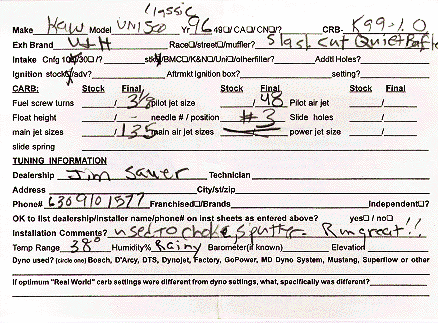 Classic
Make Kaw Model UN1500 Yr 96 49☐/CA☐/CN☐/? CRB- K99-1.0
Exh Brand V&H Race☐/street☐/muffler? Slash cut Quiet Baffle
Intake Cnfg 100/30☐/? stk/BMC☐/K&N☐/Uni☐/otherfilter? Addtl Holes?
Ignition stock/adv? Aftrmkt Ignition box? setting?
CARB: Stock Final Stock Final Stock Final
Fuel screw turns / 3½ pilot jet size / 48 Pilot air jet /
Float height / needle # / position / #3 Slide holes /
main jet sizes / 135 main air jet sizes / power jet size /
slide spring
TUNING INFORMATION
Dealership Jim Sauer Technician
Address City/st/zip
Phone# 6309101577 Franchised☐/Brands Independent☐?
OK to list dealership/installer name/phone# on inst sheets as entered above? yes☐ / no☐
Installation Comments? used to choke, sputter. Run great!!
Temp Range 38° Humidity% Rainy Barometer(if known) Elevation
Dyno used? (circle one) Bosch, D'Arcy, DTS, Dynojet, Factory, GoPower, MD Dyno System, Mustang, Superflow or other
If optimum "Real World" carb settings were different from dyno settings, what, specifically was different?